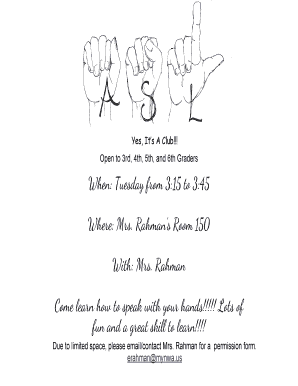 A S L
Yes, It's A Club!!!
Open to 3rd, 4th, 5th, and 6th Graders
When: Tuesday from 3:15 to 3:45
Where: Mrs. Rahman's Room 150
With: Mrs. Rahman
Come learn how to speak with your hands!!!!! Lots of
fun and a great skill to learn!!!!
Due to limited space, please email/contact Mrs. Rahman for a permission form.
erahman@mynwa.us